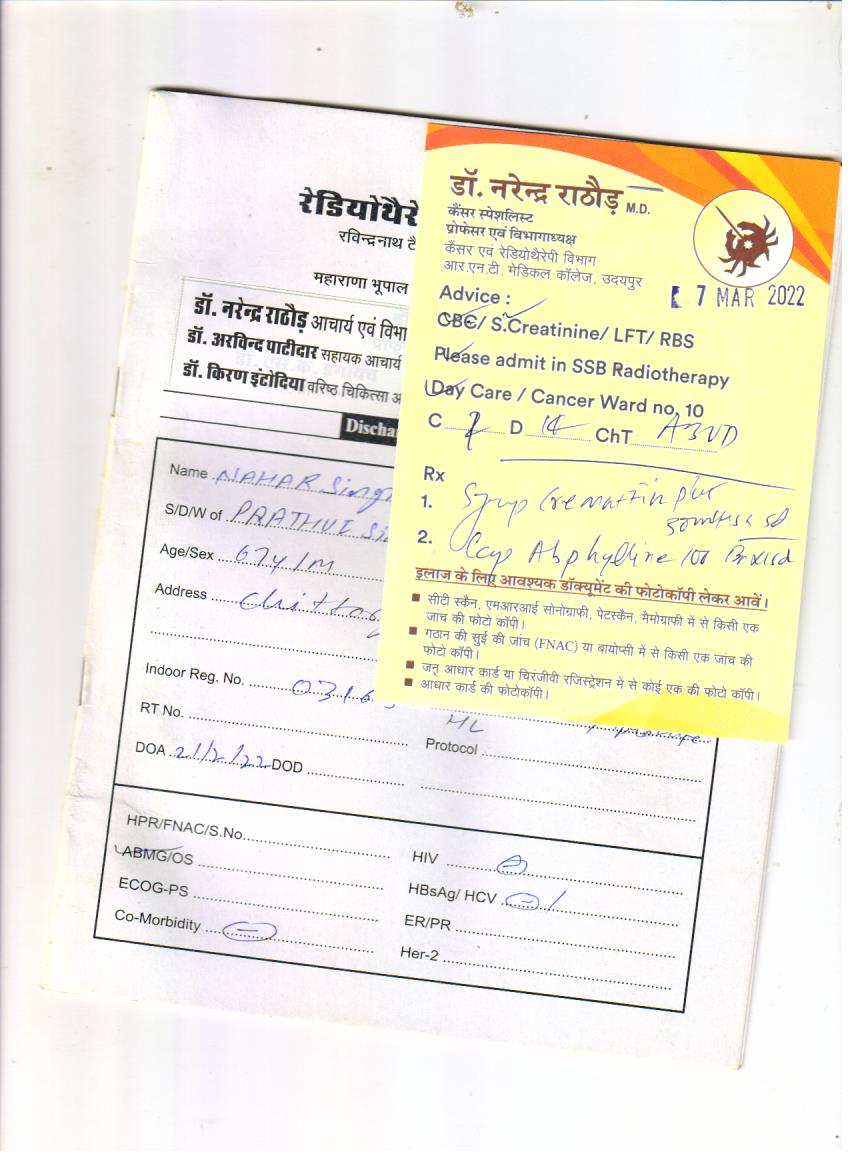 रेडियोथैरे
रविन्द्रनाथ टै
महाराणा भूपाल
डॉ. नरेन्द्र राठौड़ आचार्य एवं विभा
डॉ. अरविन्द पाटीदार सहायक आचार्य
डॉ. किरण इंटोदिया वरिष्ठ चिकित्सा अ
Discha
Name NAHAR Singh
S/D/W of PRATHVI Si
Age/Sex 67y/M
Address Chittog
Indoor Reg. No. 0316
RT No.
DOA 21/2/22 DOD
HL
Protocol
HPR/FNAC/S.No.
ABMG/OS
ECOG-PS
Co-Morbidity (-)
HIV
HBsAg/ HCV (-)
ER/PR
Her-2
डॉ. नरेन्द्र राठौड़ M.D.
कैंसर स्पेशलिस्ट
प्रोफेसर एवं विभागाध्यक्ष
कैंसर एवं रेडियोथैरेपी विभाग
आर.एन.टी. मेडिकल कॉलेज, उदयपुर
7 MAR 2022
Advice :
CBC/ S.Creatinine/ LFT/ RBS
Please admit in SSB Radiotherapy
Day Care / Cancer Ward no. 10
C D 14 ChT ABVD
Rx
1. Syrup Cremaffin plus
2. Cap Abphylline 100
इलाज के लिए आवश्यक डॉक्यूमेंट की फोटोकॉपी लेकर आवें।
■ सीटी स्कैन, एमआरआई सोनोग्राफी, पेटस्कैन, मैमोग्राफी में से किसी एक
जांच की फोटो कॉपी।
■ गठान की सुई की जांच (FNAC) या बायोप्सी में से किसी एक जांच की
फोटो कॉपी।
■ जन आधार कार्ड या चिरंजीवी रजिस्ट्रेशन में से कोई एक की फोटो कॉपी।
■ आधार कार्ड की फोटोकॉपी।